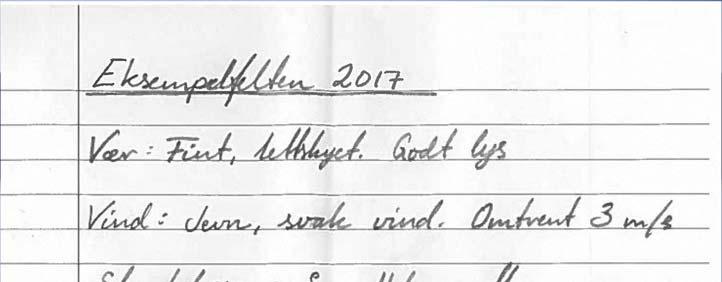 Eksempelfelten 2017
Vær: Fint, lettskyet. Godt lys
Vind: Jevn, svak vind. Omtrent 3 m/s